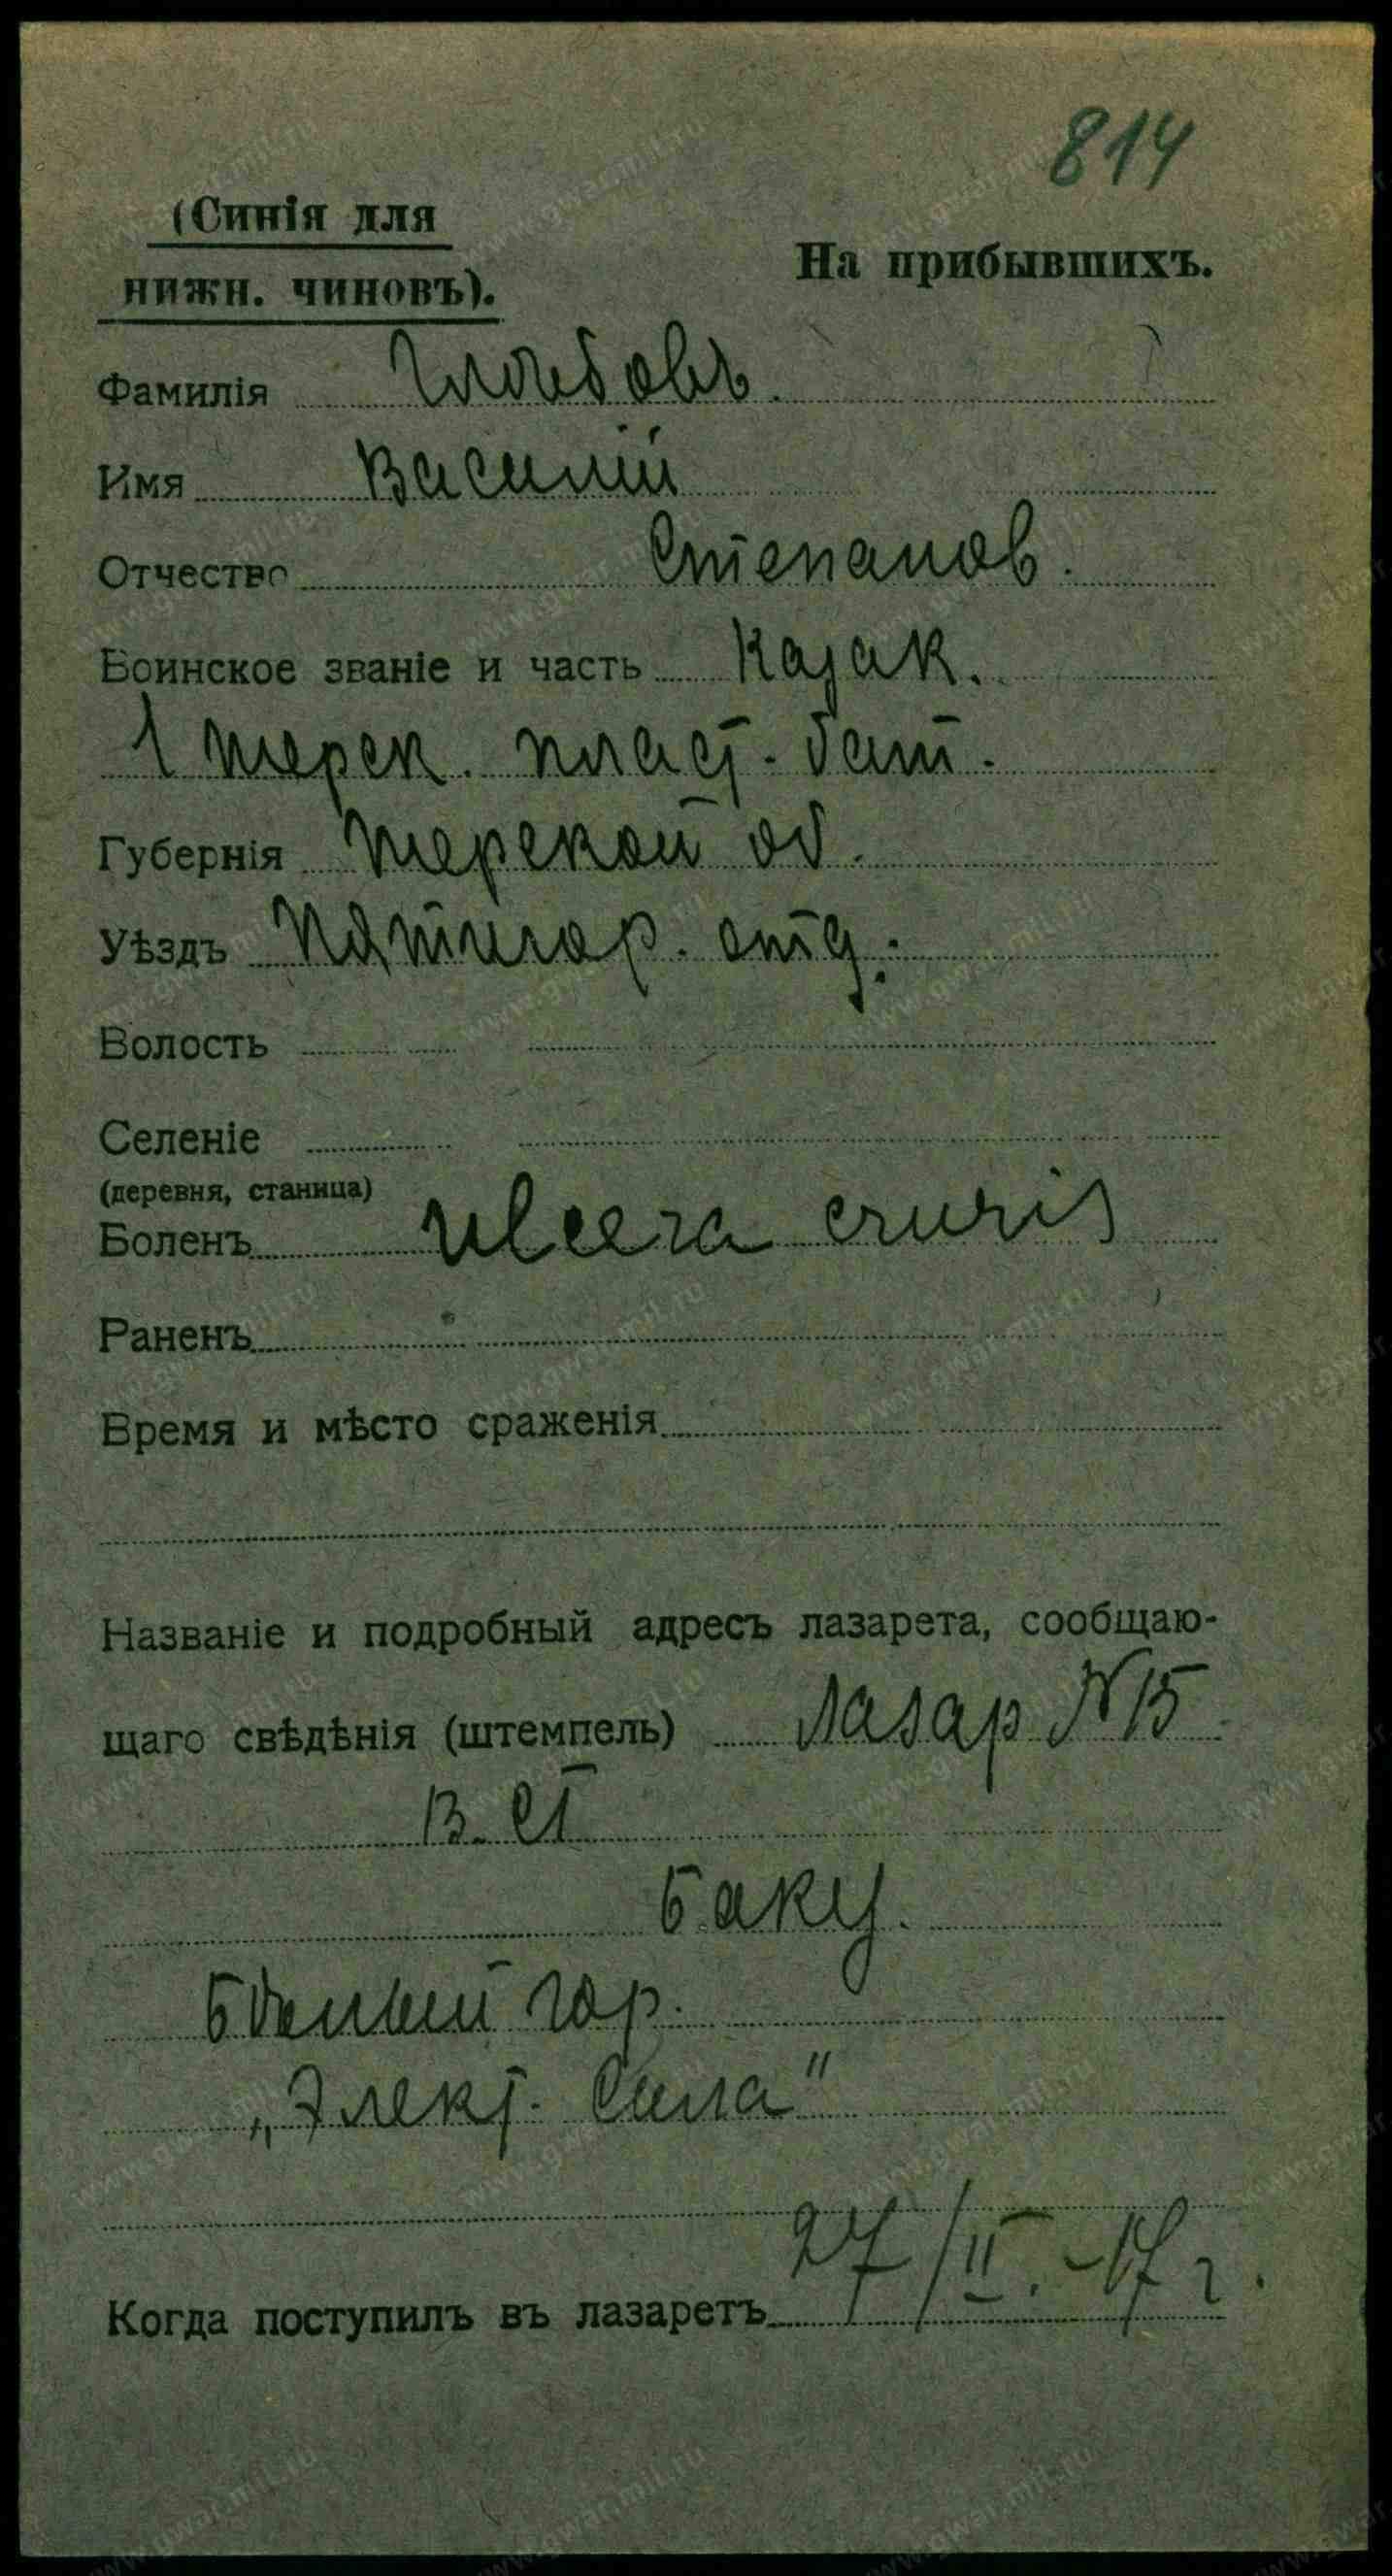 814
(Синія для
нижн. чиновъ).
На прибывшихъ.
Фамилія Глѣбовъ.
Имя Василій
Отчество Степанов.
Воинское званіе и часть Казак.
1 терск. пласт. бат.
Губернія Терской об.
Уѣздъ Пятигор. отд.
Волость
Селеніе
(деревня, станица)
Боленъ ulcera cruris
Раненъ
Время и мѣсто сраженія
Названіе и подробный адресъ лазарета, сообщаю-
щаго свѣдѣнія (штемпель) Лазар № 15
В. С
Баку.
Бѣлый гор.
„Элект. Сила"
Когда поступилъ въ лазаретъ 27/II.-17 г.